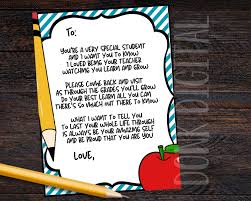 To:
You're a very special student
and I want you to know
I loved being your teacher
watching you learn and grow
Please come back and visit
as through the grades you'll grow
Do your best learn all you can
there's so much out there to know
What I want to tell you
to last your whole life through
is always be your amazing self
and be proud that you are you
Love,